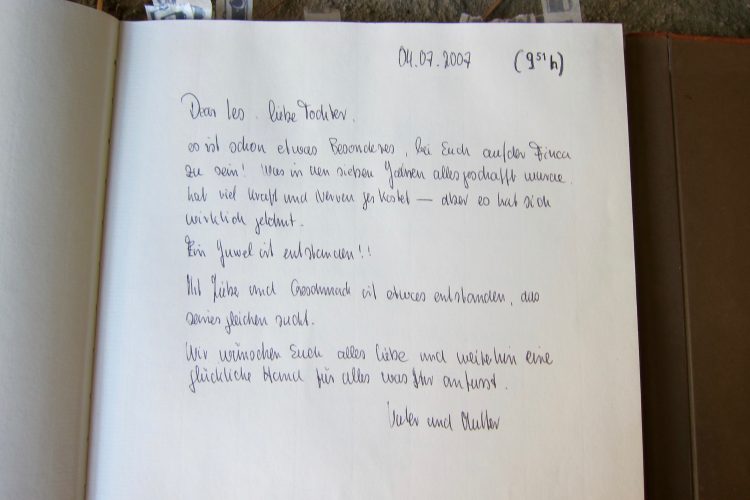 04.07.2007 (9 51 h)
Dear Leo, liebe Tochter,
es ist schon etwas Besonderes, bei Euch auf der Finca
zu sein! Was in den sieben Jahren alles geschafft wurde,
hat viel Kraft und Nerven gekostet – aber es hat sich
wirklich gelohnt.
Ein Juwel ist entstanden!!
Mit Liebe und Geschmack ist etwas entstanden, das
seines gleichen sucht.
Wir wünschen Euch alles Liebe und weiterhin eine
glückliche Hand für alles was Ihr anfasst.
Vater und Mutter